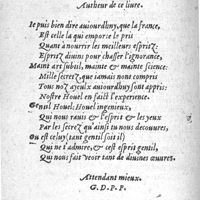 Autheur de ce liure.
Ie puis bien dire auiourdhuy, que la france,
Est celle la qui emporte le pris
Quant a nourrir les meilleurs espritz
Espritz diuins pour chasser l'ignorance,
Maint art subtil, mainte & mainte science:
Mille secretz que iamais nont compris
Tous noz ayeulx auiourdhuy sont appris:
Nostre Houel en faict l'experience.
Gentil Houel: Houel ingenieux,
Qui nous rauis & l'esprit & les yeux
Par les secretz qu'ainsi tu nous decouures,
Ou est celuy (tant gentil soit il)
Qui ne t'admire, & cest esprit gentil,
Qui nous fait veoir tant de diuines œuures.
Attendant mieux.
G. D. P. P.